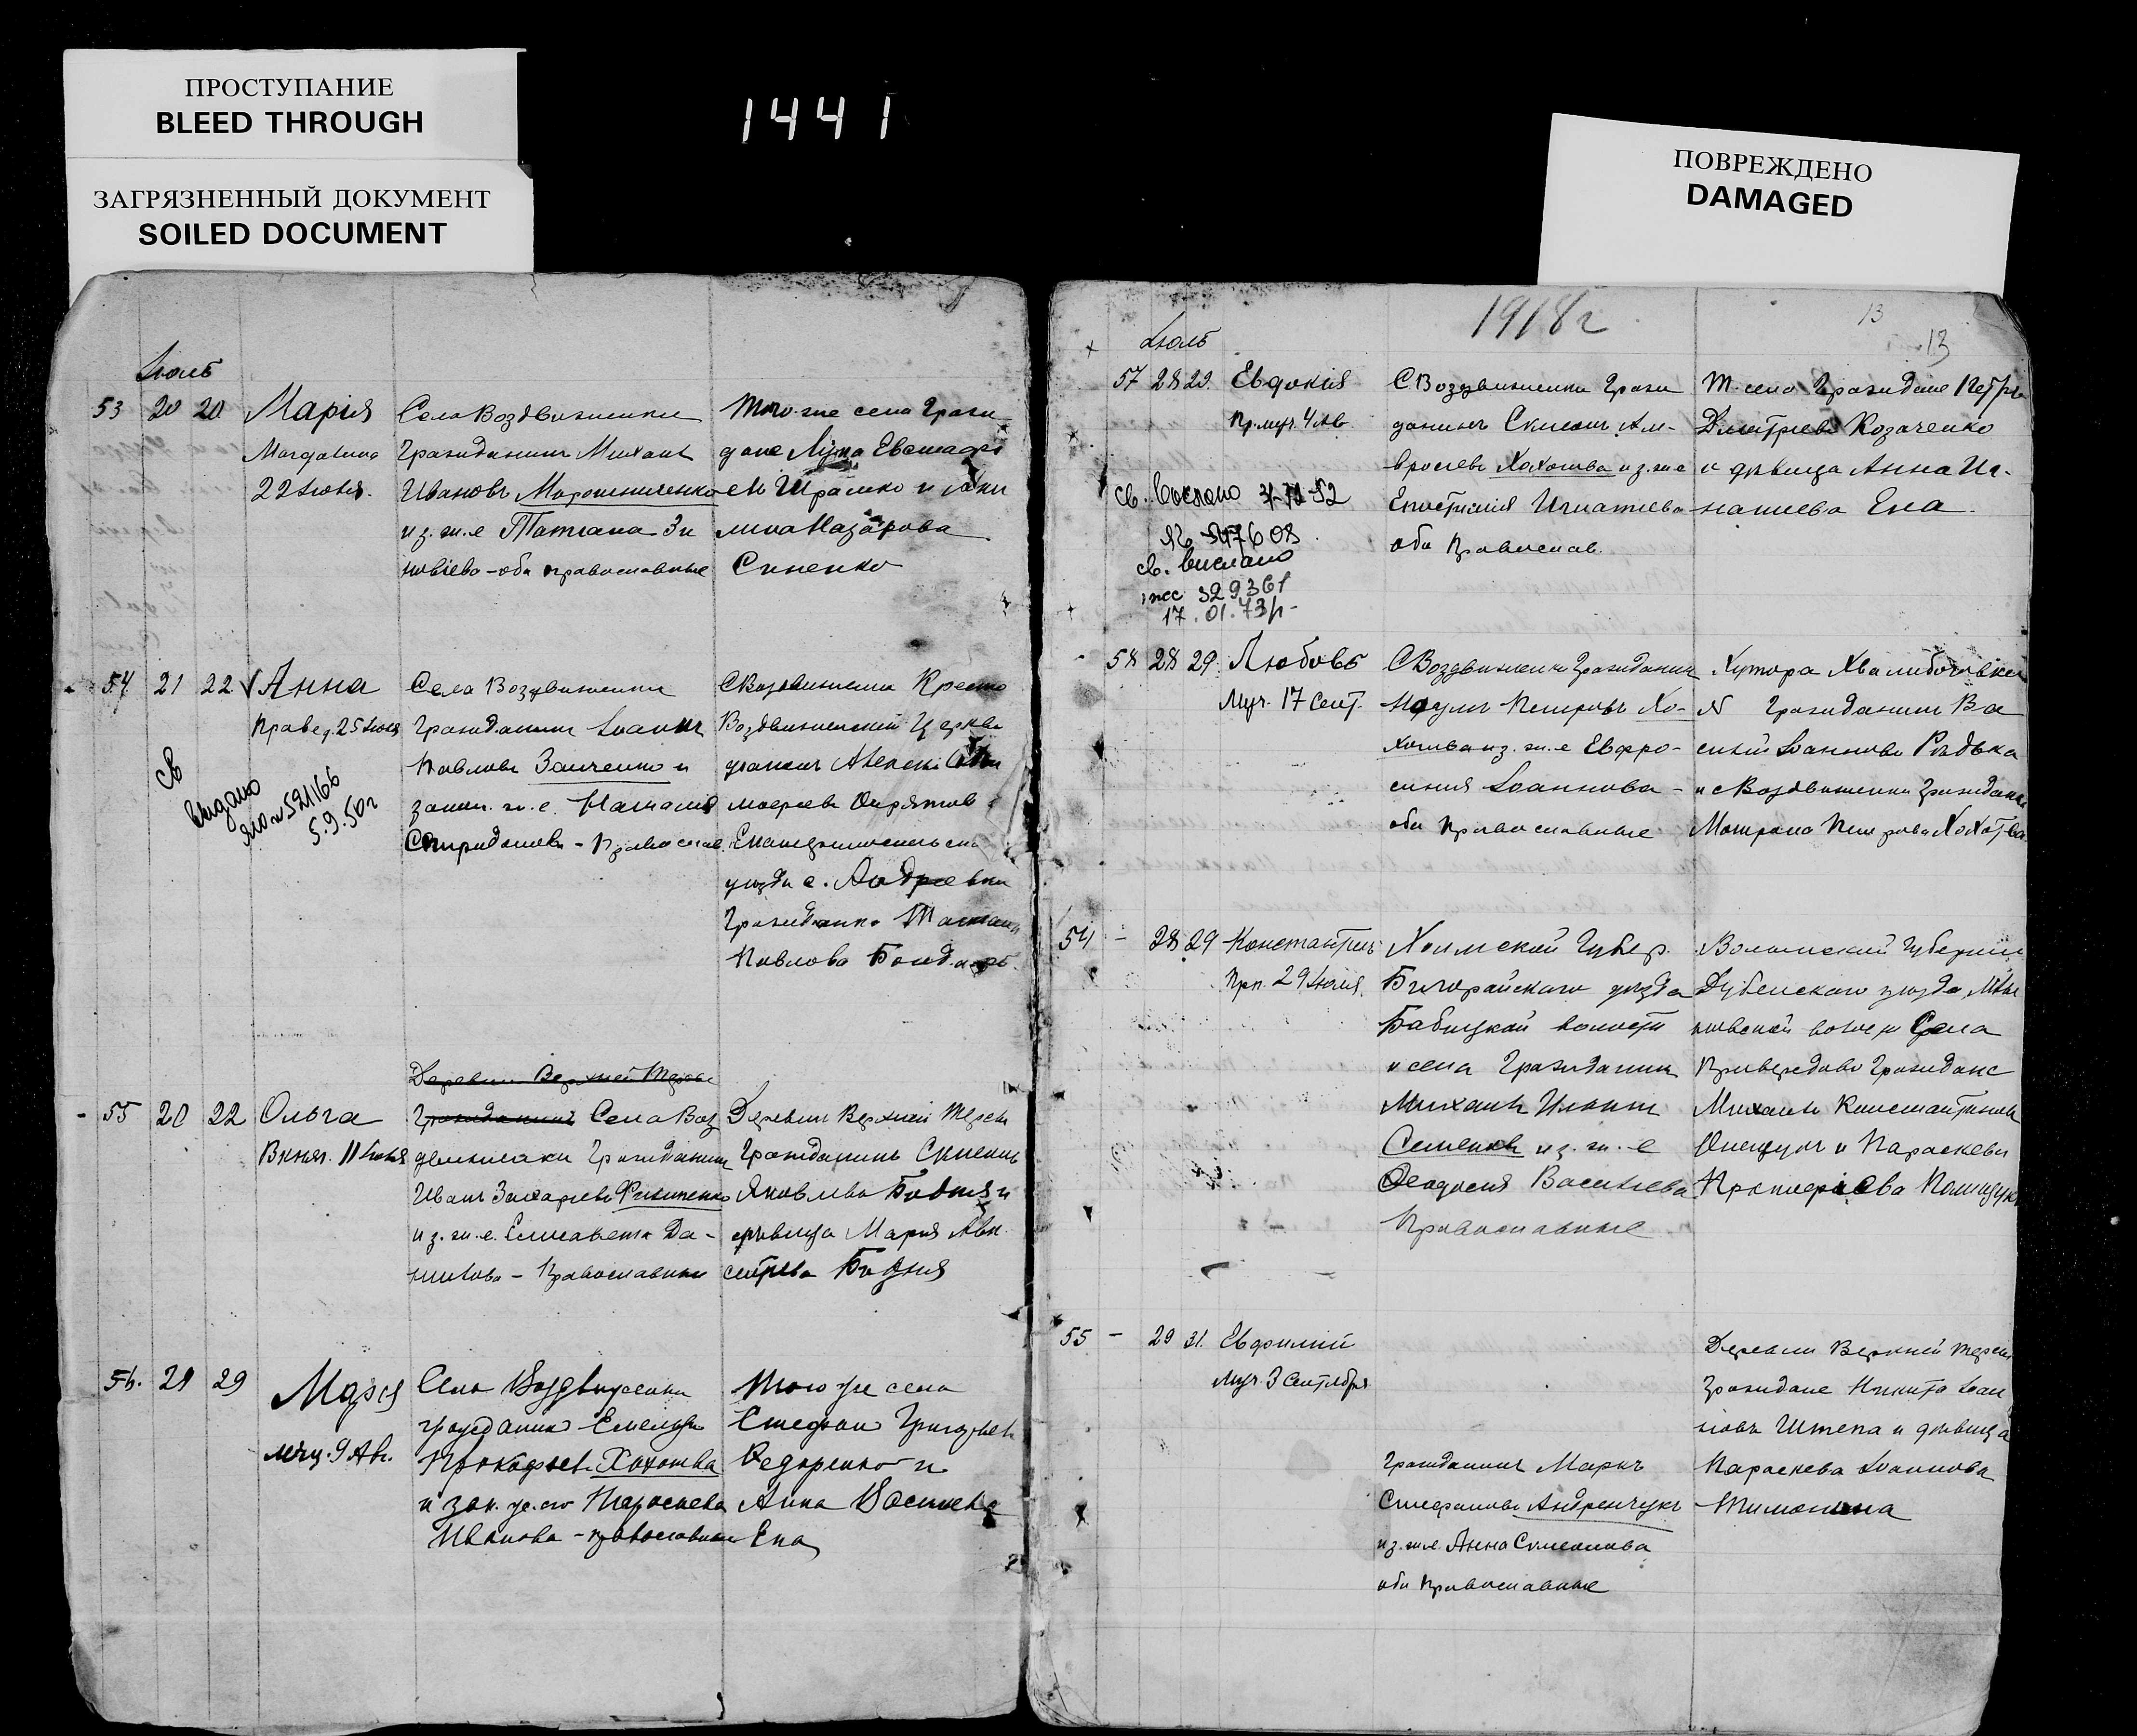 ПРОСТУПАНИЕ
BLEED THROUGH
ЗАГРЯЗНЕННЫЙ ДОКУМЕНТ
SOILED DOCUMENT
1441
ПОВРЕЖДЕНО
DAMAGED
Іюль
53 20 20 Марія
Магдалина
22 Іюля.
Села Воздвиженки
Гражданинъ Михаилъ
Ивановъ Мирошниченко
и з. ж. е Татіана Зи
новіева - оба православные
Того-же села Граж
дане Лука Евстафі
евъ Шрамко и Аки
лина Назарова
Синенко
54 21 22 Анна
Правед. 25 Іюля
св
выдано
яло № 521166
5.9.50г
Села Воздвиженки
Гражданинъ Іоаннъ
Павловъ Заиченко и
закон. ж. е. Наталія
Спиридонова - Православ.
С Воздвиженки Кресто
Воздвиженской Церкви
уезда с. Андреевки
Гражданка Татіана
Павлова Бондарь.
55 20 22 Ольга
Вел. княг. 11 Іюля
Деревни Верхней Терсы
Гражданинъ Села Воз
движенки Гражданинъ
Иванъ Захаріевъ Филипенко
и з. ж. е. Елисавета Да-
нилова - Православные
Деревни Верхней Терсы
Гражданинъ Симеонъ
Яковлевъ Бодня и
дѣвица Марія Авк
сентіева Бодня
56. 29 29 Марія
мчц. 9 Авг.
Села Воздвиженки
гражданинъ Емельянъ
Прокофьев. Хохотва
и зак. же. его Параскева
Иванова - православные
Того же села
Стефанъ Григорьев
Федоренко и
Анна Васильева
Ена
1918г
13
13
Іюль
57 28 29. Евдокія
Пр. муч. 4 Ав.
св. выслано
№ 347608
св. вислано
329361
17.01.73р-
С Воздвиженки Граж
данинъ Симеонъ Ам-
вросіевъ Хохотва и з. ж. е
Епистимія Игнатіева
оба Православ.
Т. села Граждане Петръ
Дмитріевъ Козаченко
и дѣвица Анна Иг-
натіева Ена.
58 28 29. Любовь
Муч. 17 Сент.
С Воздвиженки Гражданинъ
Наумъ Петровъ Хо-
хотва и з. ж. е Евфро-
синія Іоаннова -
оба Православные
Хутора Хвалибоговки
Гражданинъ Ва
силій Іоанновъ Рѣдька
и с Воздвиженки Гражданка
Матрона Петрова Хохотва
54 - 28 29 Константинъ
Прп. 29 Іюля.
Холмской Губер.
Билгорайскаго уѣзда
Бабицкой волости
и села Гражданинъ
Михаилъ Ильинъ
Семеновъ и з. ж. е
Феодосія Васильева
Православные
Волынской Губерніи
Дубенскаго уѣзда
волости Села
Граждане
Михаилъ Константиновъ
Онещукъ и Параскева
Полищукъ
55 - 29 31. Евфимій
Муч. 3 Сентября
Гражданинъ Маркъ
Стефановъ Андрейчукъ
и з. ж. е. Анна Симеонова
оба православные
Деревни Верхней Терсы
Граждане Никита Іоан
новъ Штепа и дѣвица
Параскева Іоаннова
Тимошина